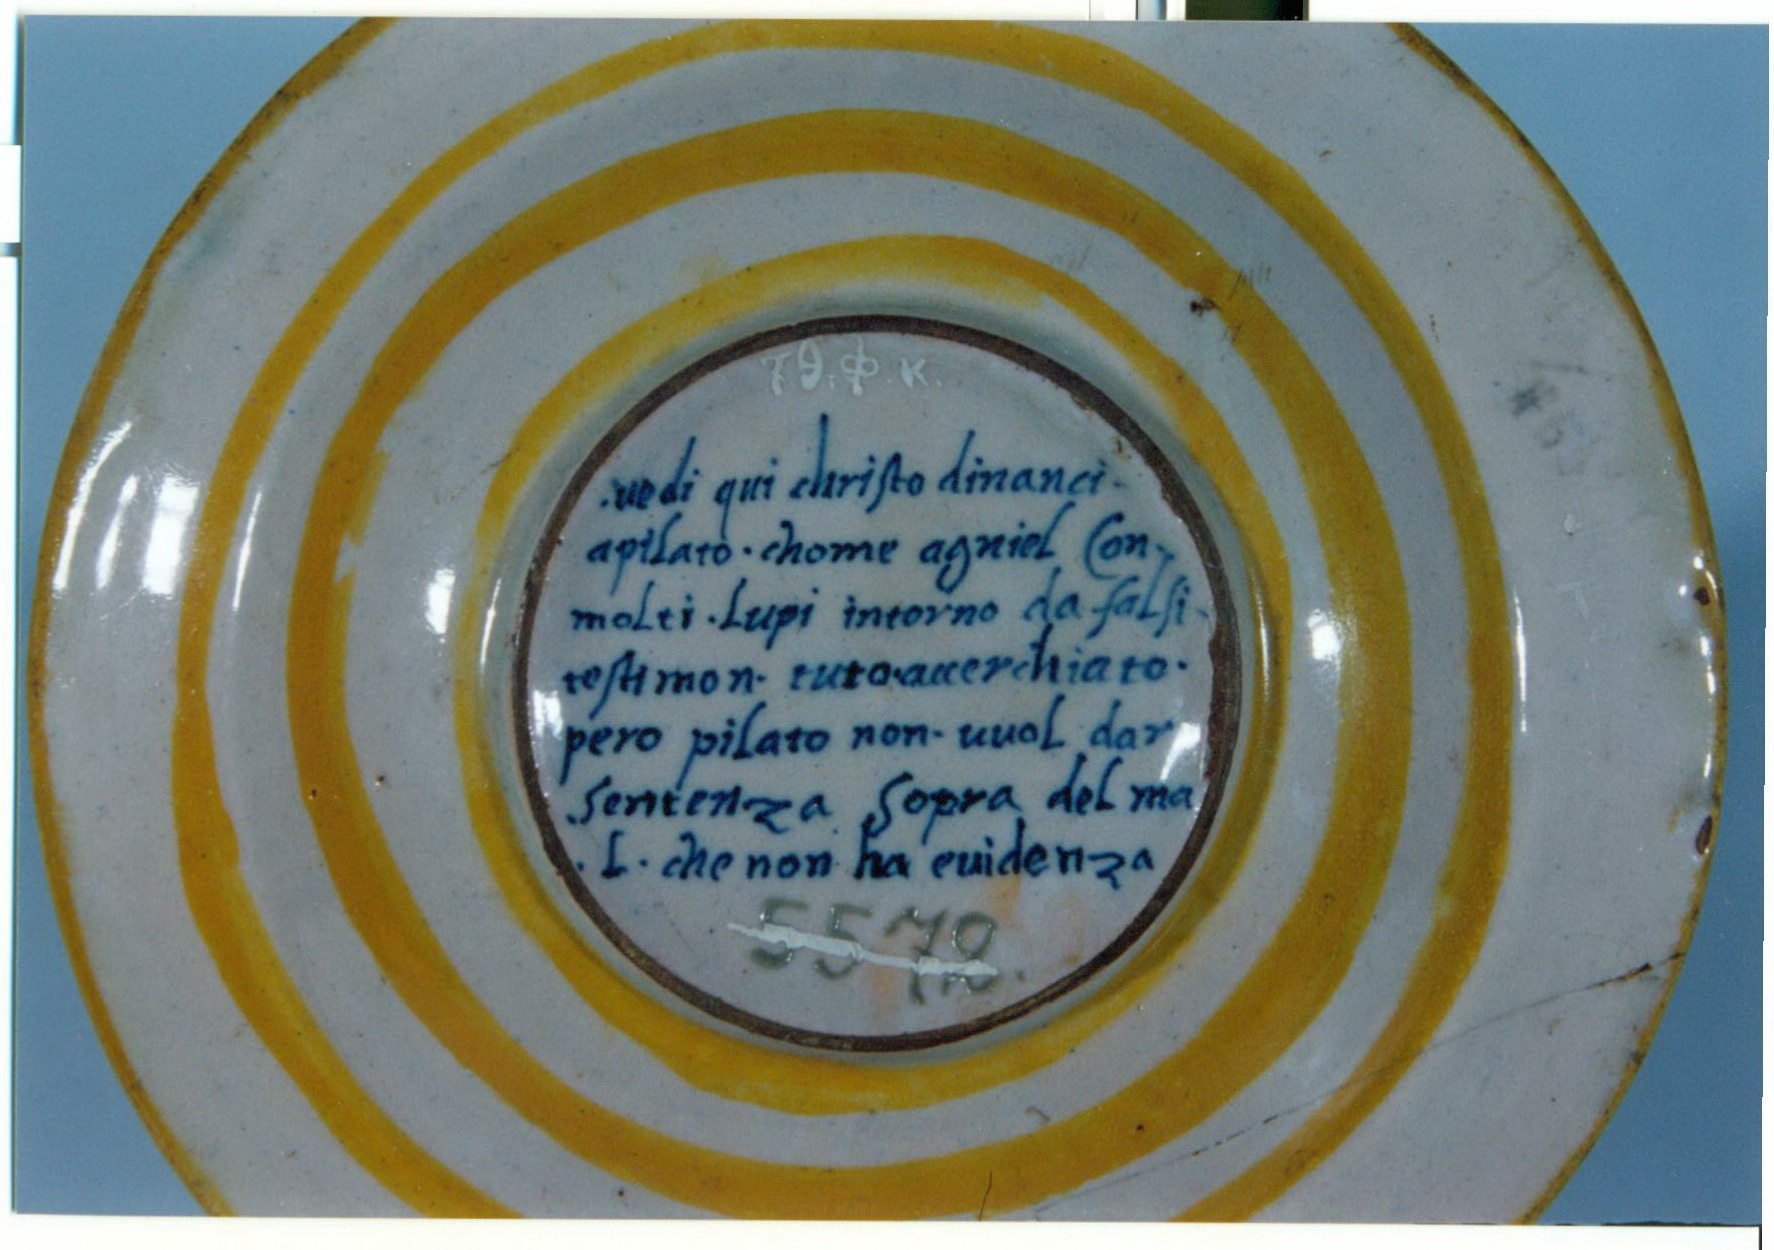 79.Ф.К.
.uedi qui christo dinanci-
apilato · chome agniel Con-
molti · Lupi intorno da falsi-
testimon· tuto·acerchiato·
pero pilato non· uuol dar
.sentenza Sopra del ma
·L· che non ha euidenza
5578.